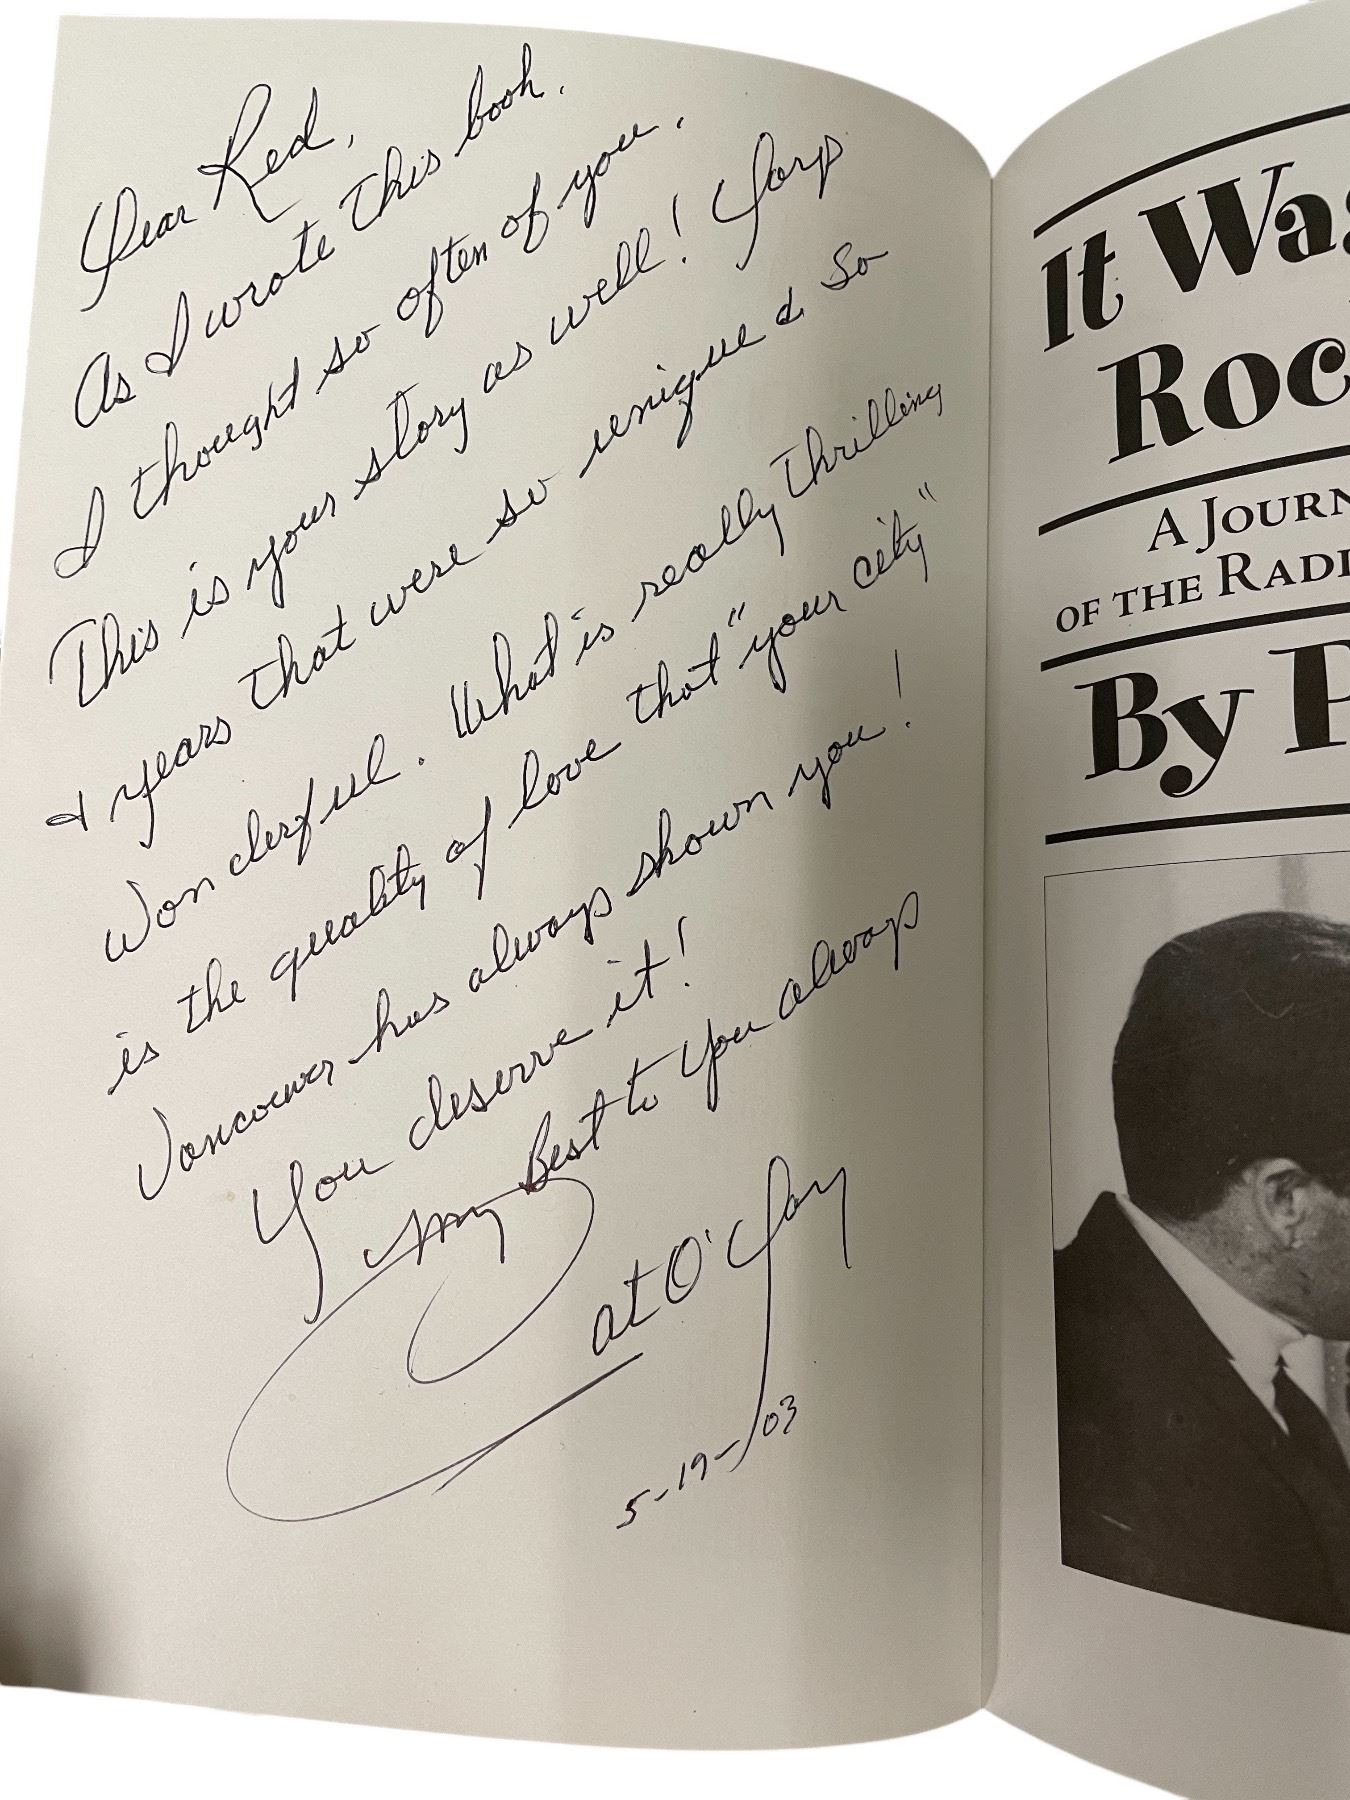 Dear Red,
As I wrote this book.
I thought so often of you.
This is your story as well! Days
& years that were so unique & so
wonderful. What is really thrilling
is the quality of love that "your city"
Vancouver has always shown you!
You deserve it!
My Best to you always
Pat O'Day
5-19-03
It Was
Roc
A Journ
of the Radi
By P